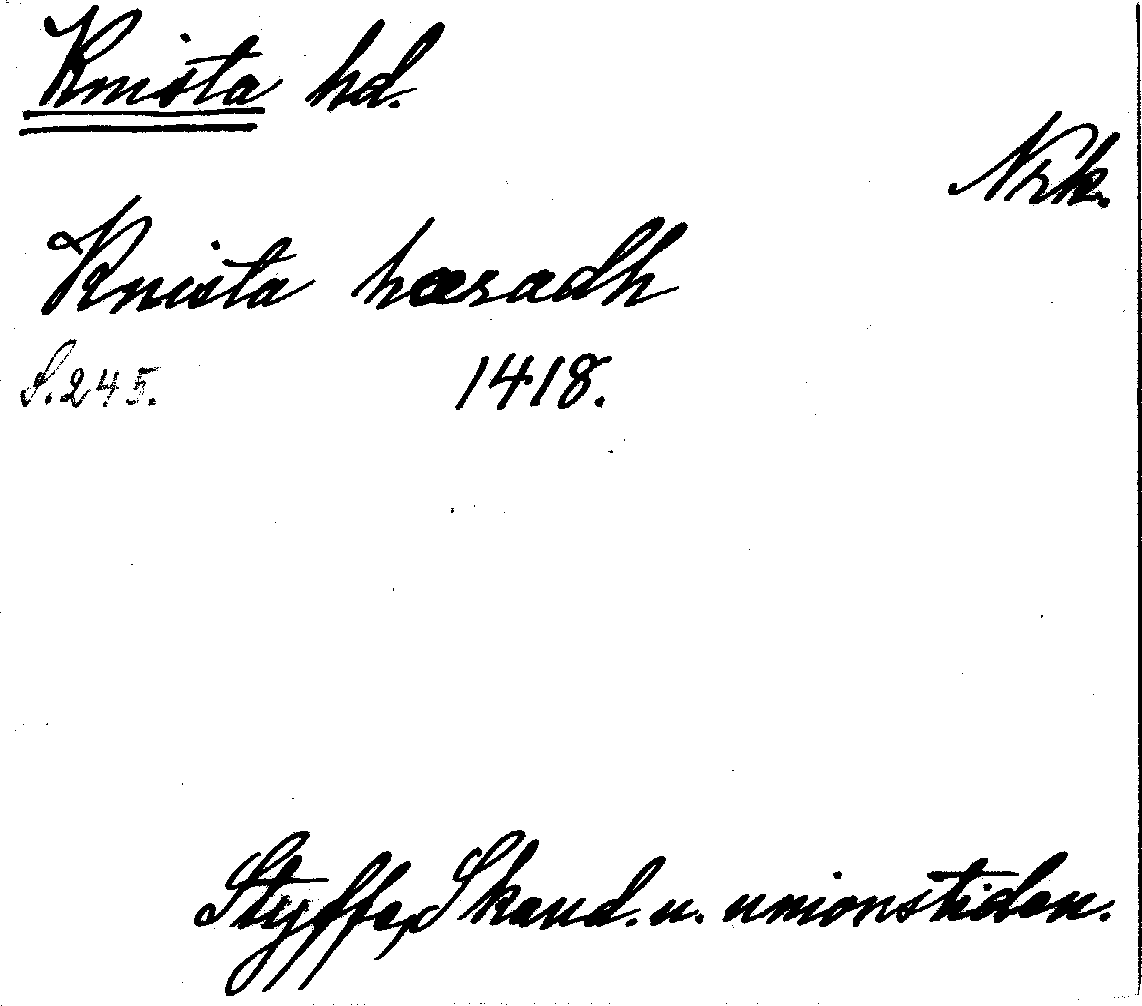 Knista hd.
Nrk.
Knista hæradh
S. 245. 1418.
Styffe, Skand. u. unionstiden.